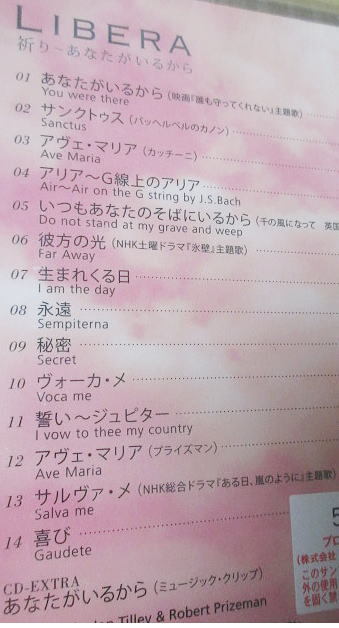 LIBERA
祈り~あなたがいるから
01 あなたがいるから(映画『誰も守ってくれない』主題歌)
You were there
02 サンクトゥス(パッヘルベルのカノン)
Sanctus
03 アヴェ・マリア(カッチーニ)
Ave Maria
04 アリア~G線上のアリア
Air~Air on the G string by J.S.Bach
05 いつもあなたのそばにいるから(千の風になって 英国
Do not stand at my grave and weep
06 彼方の光(NHK土曜ドラマ『氷壁』主題歌)
Far Away
07 生まれくる日
I am the day
08 永遠
Sempiterna
09 秘密
Secret
10 ヴォーカ・メ
Voca me
11 誓い~ジュピター
I vow to thee my country
12 アヴェ・マリア(プライズマン)
Ave Maria
13 サルヴァ・メ(NHK総合ドラマ『ある日、嵐のように』主題歌)
Salva me
14 喜び
Gaudete
CD-EXTRA
あなたがいるから(ミュージック・クリップ)
Tilley & Robert Prizeman
プロ
(株式会社
このサン
外の使用
を固く禁